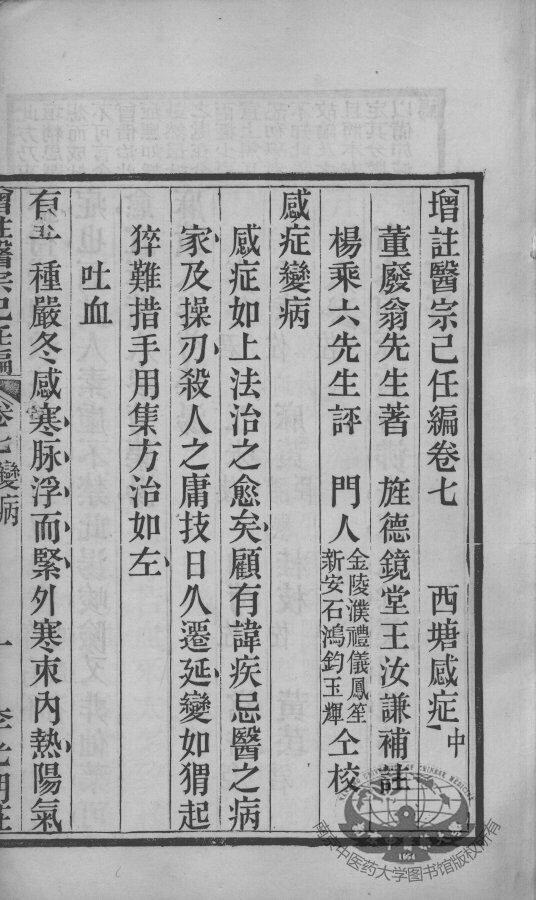 增註醫宗己任編卷七　西塘感症中
董廢翁先生著　旌德鏡堂王汝謙補註
楊乘六先生評　門人金陵濮禮儀鳳笙新安石鴻鈞玉輝仝校
感症變病
感症如上法治之愈矣顧有諱疾忌醫之病
家及操刃殺人之庸技日久遷延變如猬起
猝難措手用集方治如左
吐血
有一種嚴冬感寒脉浮而緊外寒束內熱陽氣
增註醫宗己任編 卷七變病 一
南京中医药大学图书馆版权所有
1954